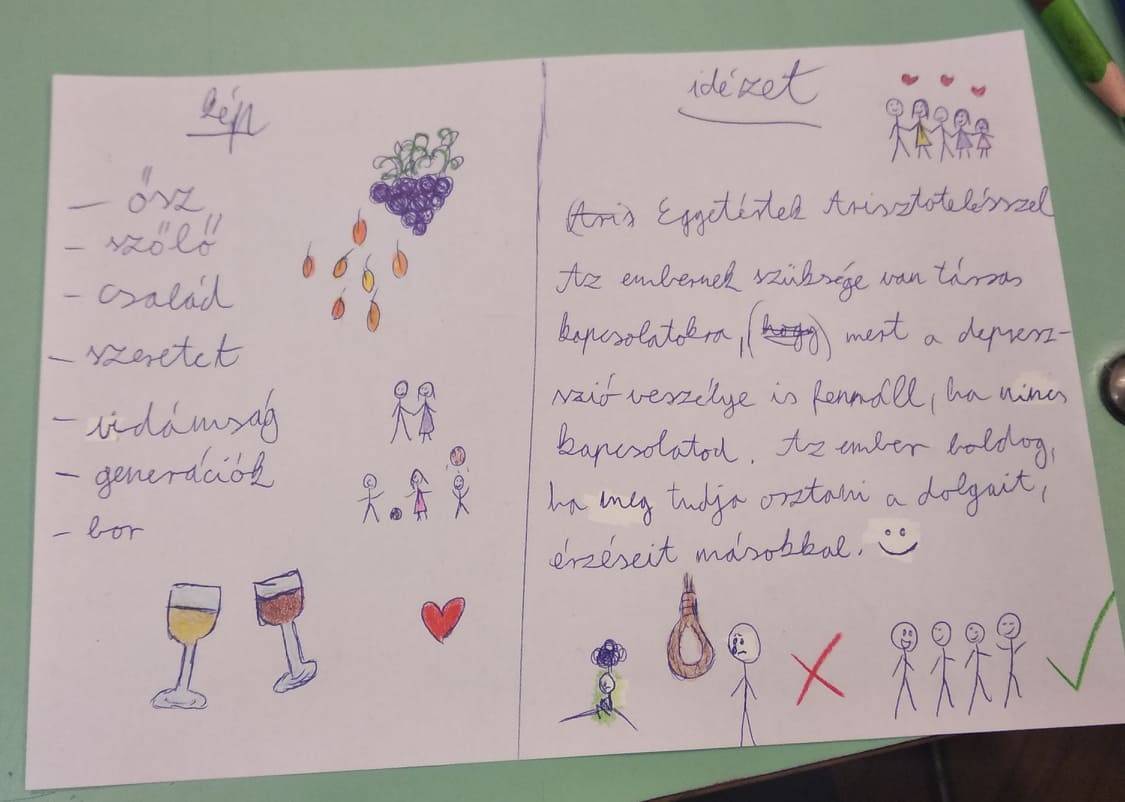 kép
— ősz
— szőlő
— család
— szeretet
— vidámság
— generációk
— bor
idézet
(Aris Eggetértek Arisztotelésszel
Az embernek szüksége van társas
kapcsolatokra, (hogy) mert a depresz-
szió veszélye is fennáll, ha nincs
kapcsolatod. Az ember boldog,
ha meg tudja osztani a dolgait,
érzéseit másokkal.